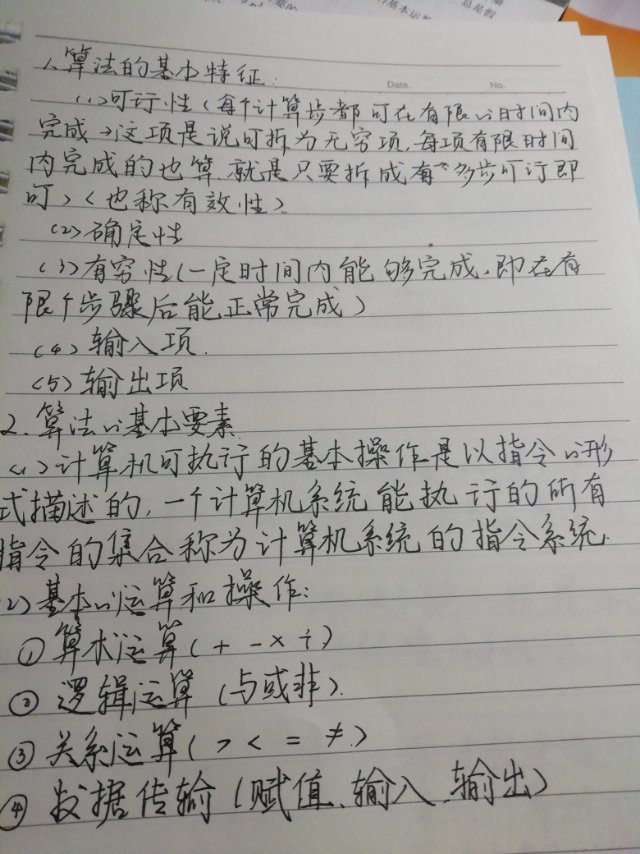 1.算法的基本特征:
Date. No.
(1)可行性(每个计算步都可在有限的时间内
完成→这项是说可拆为无穷项,每项有限时间
内完成的也算,就是只要拆成有多步可行即
可)(也称有效性)
(2)确定性
(3)有穷性(一定时间内能够完成,即在有
限个步骤后能正常完成)
(4)输入项.
(5)输出项
2.算法的基本要素
(1)计算机可执行的基本操作是以指令的形
式描述的,一个计算机系统能执行的所有
指令的集合称为计算机系统的指令系统.
(2)基本的运算和操作:
①算术运算(+ - × ÷)
②逻辑运算(与或非).
③关系运算(> < = ≠)
④数据传输(赋值、输入、输出)